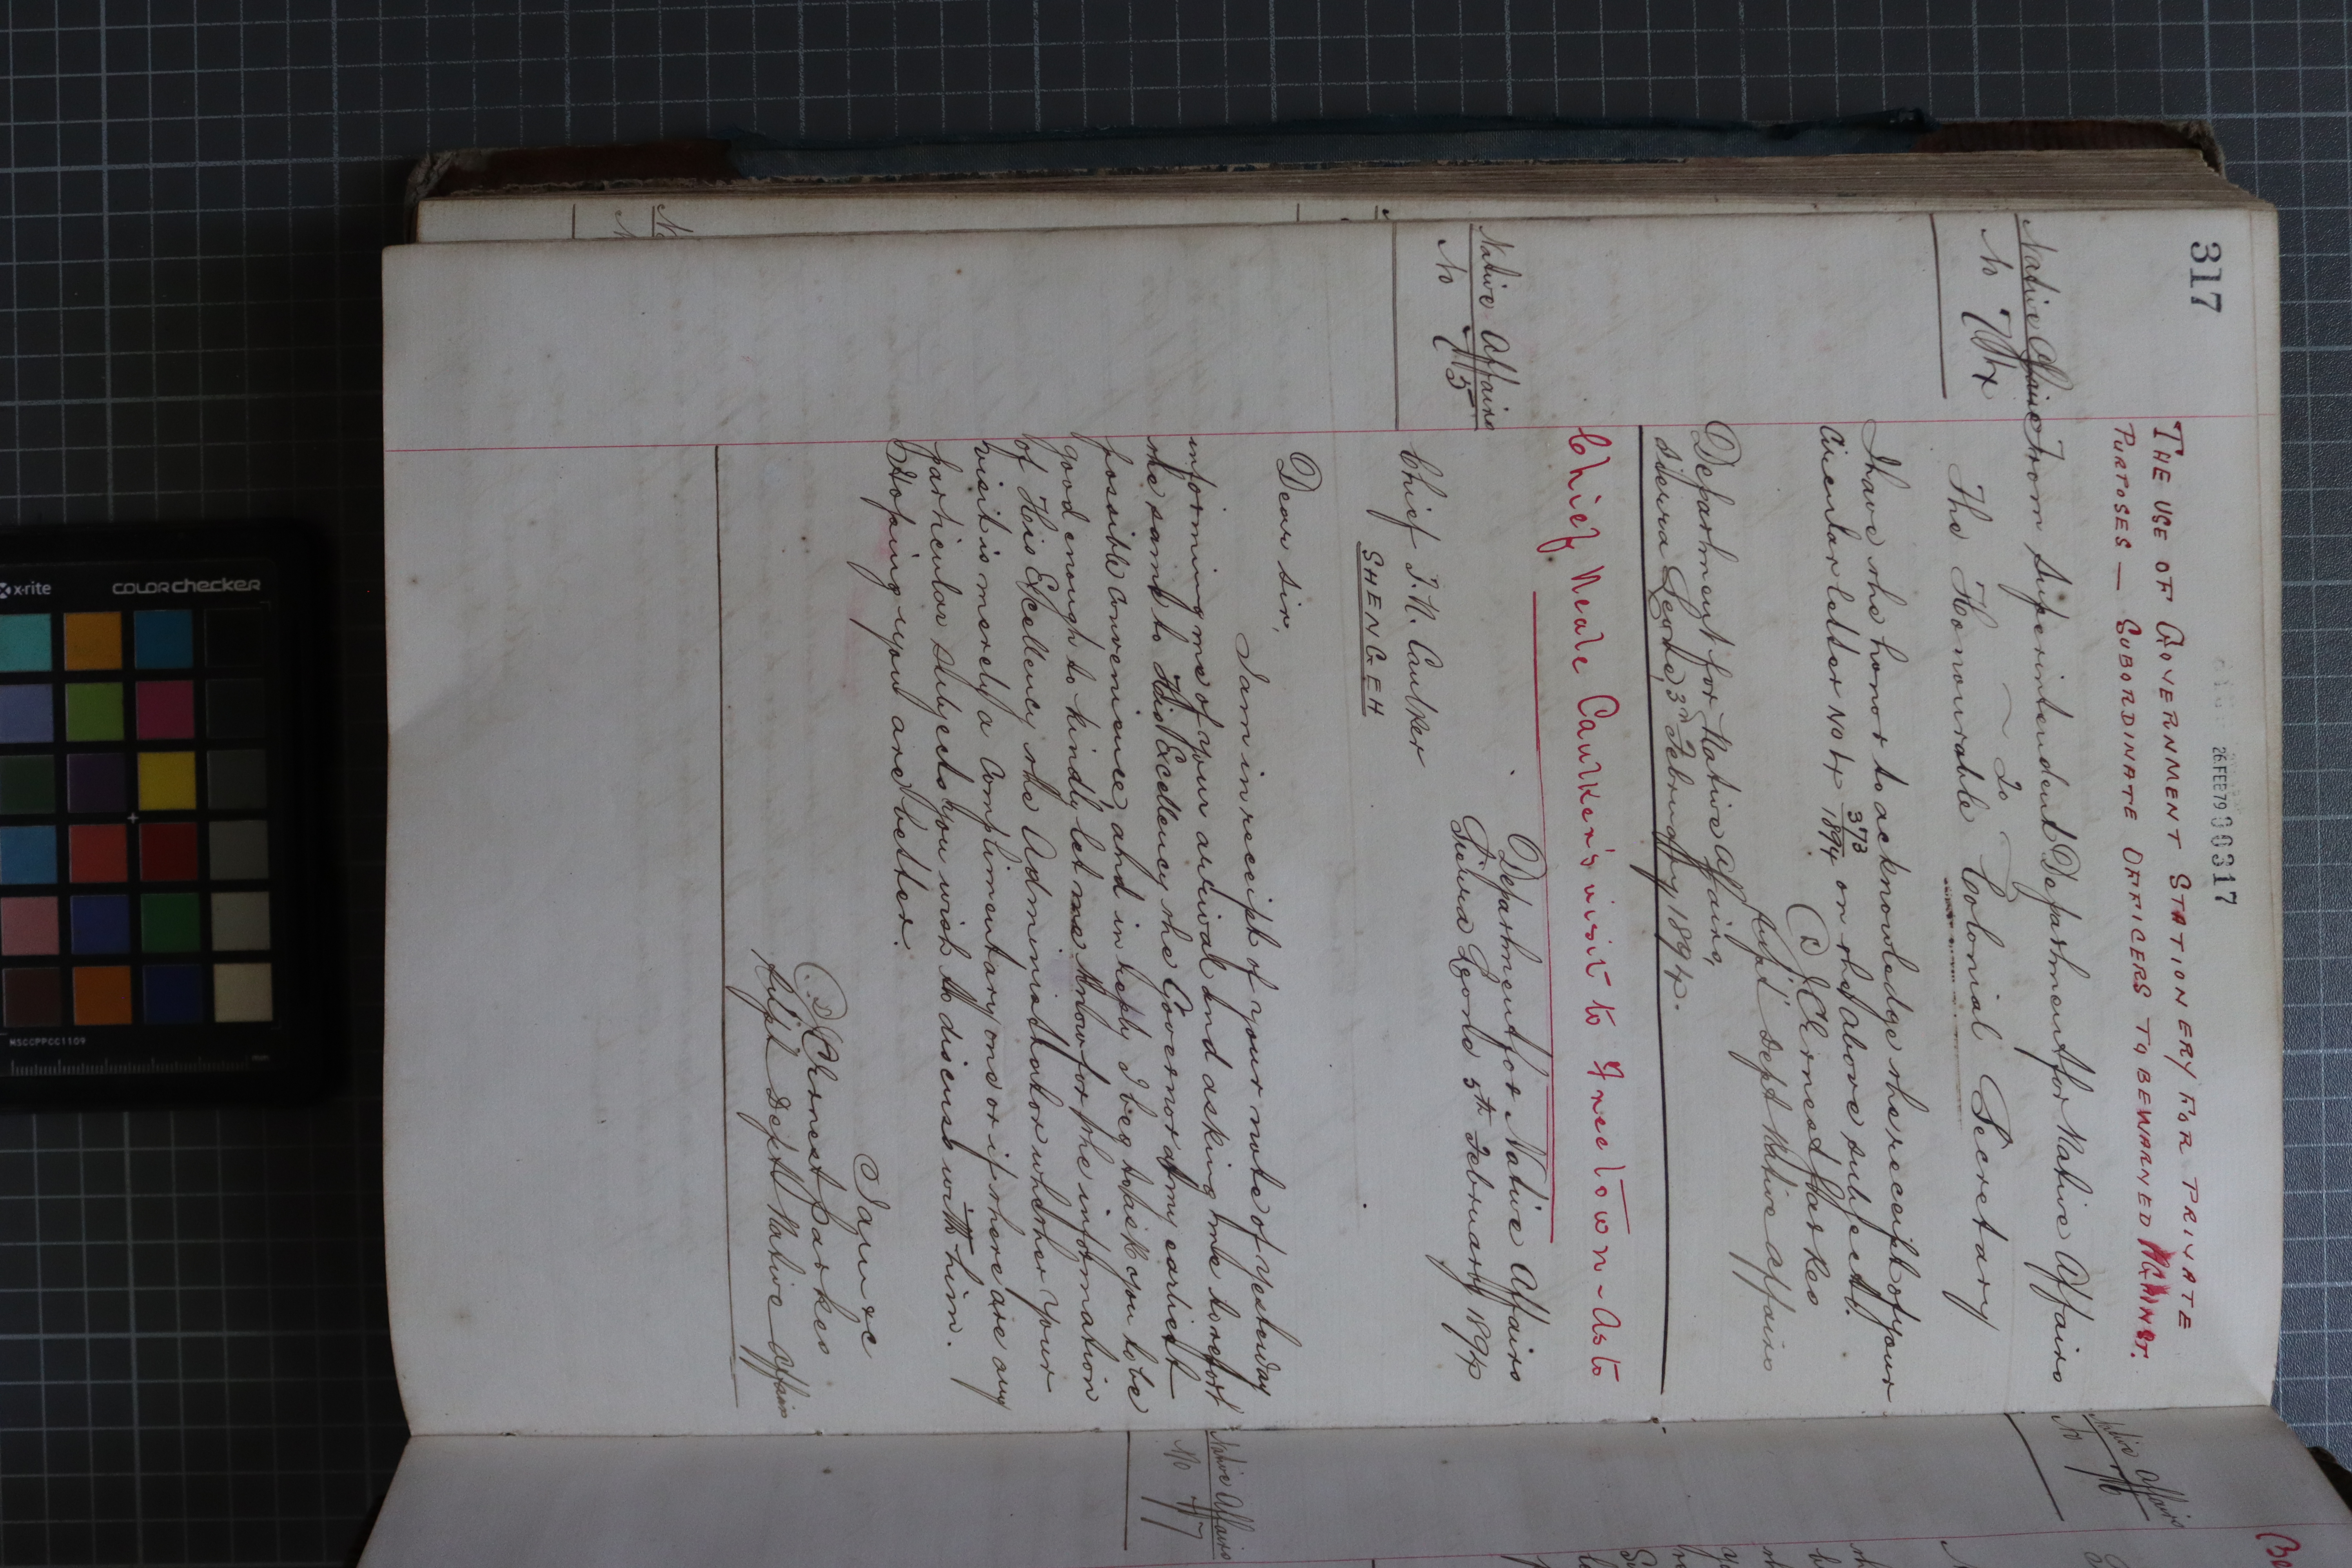 317
26 FEB 79 000317
THE USE OF GOVERNMENT STATIONERY FOR PRIVATE
PURPOSES — SUBORDINATE OFFICERS TO BE WARNED AGAINST.
Native Affairs
No 74
From Superintendent Department for Native Affairs
To
The Honourable Colonial Secretary
I have the honor to acknowledge the receipt of your
Circular letter No 4 373/1894 on the above subject.
J C Ernest Parkes
Supt Dept Native Affairs
Department for Native Affairs,
Sierra Leone, 3rd February 1894.
Chief Neale Caulker's visit to Freetown - as to
Native Affairs
No 75
Department for Native Affairs
Sierra Leone 5th February 1894
Chief T. N. Caulker
SHENGEH
Dear Sir,
I am in receipt of your note of yesterday
informing me of your arrival and asking me to report
the same to His Excellency the Governor at my earliest
possible convenience, and in reply I beg to ask you to be
good enough to kindly let me know for the information
of His Excellency the Administrator whether your
visit is merely a complimentary one or if there are any
particular subjects you wish to discuss with him.
Hoping you are better.
I am &c
Ernest Parkes
Supt Dept Native Affairs
Native Affairs
No 76
Native Affairs
No 77
x-rite
COLORchecker
MSCCPPCC1109